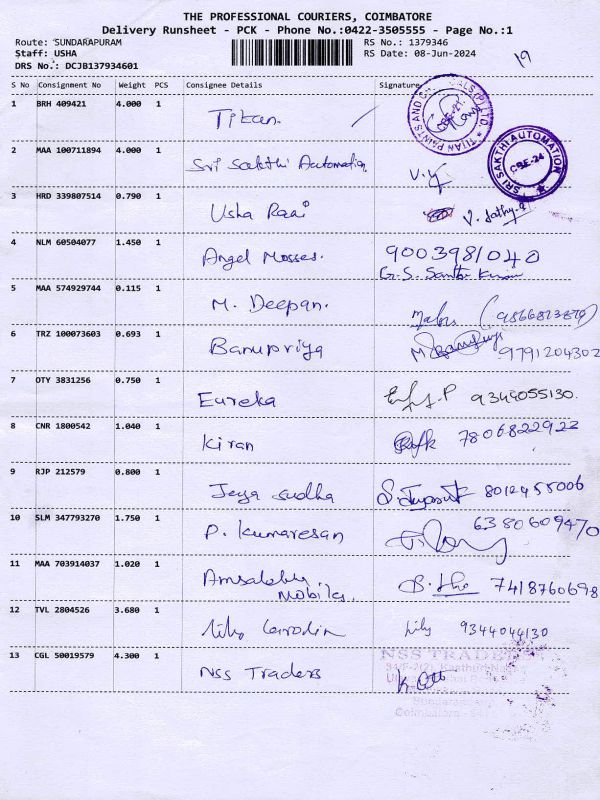 THE PROFESSIONAL COURIERS, COIMBATORE
Delivery Runsheet - PCK - Phone No.:0422-3505555 - Page No.:1
Route: SUNDARAPURAM RS No.: 1379346
Staff: USHA RS Date: 08-Jun-2024
DRS No.: DCJB137934601
19
S No Consignment No Weight PCS Consignee Details Signature
1 BRH 409421 4.000 1 Titan.
TITAN PAINTS AND LTD. CBE-21
2 MAA 100711894 4.000 1 Sri Sakthi Automation
SRI SAKTHI AUTOMATION CBE-24
3 HRD 339807514 0.790 1 Usha Raai V. Sathy
4 NLM 60504077 1.450 1 Angel Mosses. 9003981040
G.S.
5 MAA 574929744 0.115 1 M. Deepan. (9566823879)
6 TRZ 100073603 0.693 1 Banupriya 9791204302
7 OTY 3831256 0.750 1 Eureka 9344055130.
8 CNR 1800542 1.040 1 Kiran 7806822922
9 RJP 212579 0.800 1 Jeya Sudha 8012455006
10 SLM 347793270 1.750 1 P. Kumaresan 6380609470
11 MAA 703914037 1.020 1 Mobiles. 7418760698
12 TVL 2804526 3.680 1 Lily Lily 9344044130
13 CGL 50019579 4.300 1 NSS Traders
NSS TRADERS
Coimbatore